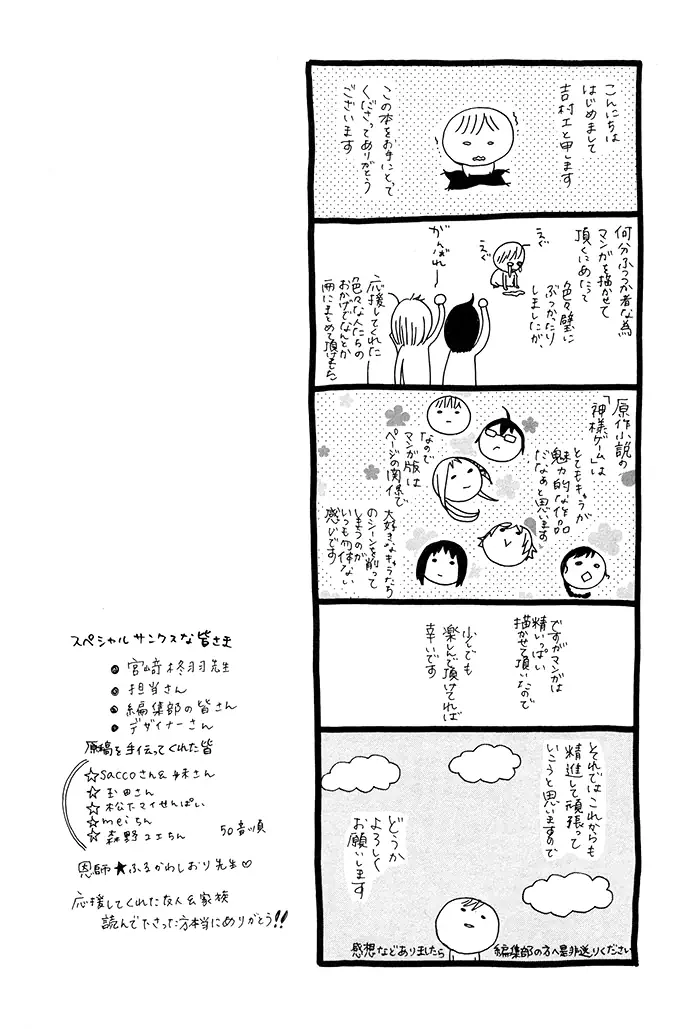 こんにちは
はじめまして
吉村エと申します
この本をお手にとって
くださってありがとう
ございます
何分ふつつか者な為
マンガを描かせて
頂くにあたって
色々壁に
ぶつかったり
しましたが、
えぐ
えぐ
がんばれー
応援してくれた
色々な人たちの
おかげでなんとか
冊にまとめて頂けました
原作小説の
「神様ゲーム」は
とてもキャラが
魅力的な作品
だなぁと思います
なので
マンガ版は
ページの関係で
大好きなキャラたち
のシーンを削って
しまうのが
いつも勿体ない
感じです
ですがマンガは
精いっぱい
描かせて頂いたので
少しでも
楽しんで頂けてれば
幸いです
それではこれからも
精進して頑張って
いこうと思いますので
どうか
よろしく
お願いします
感想などありましたら
編集部の方へ是非送りください
スペシャルサンクスな皆さま
●宮﨑柊羽先生
●担当さん
●編集部の皆さん
●デザイナーさん
原稿を手伝ってくれた皆
☆saccoさん&妹さん
☆玉田さん
☆松下マイせんぱい
☆meiちん
☆森野ユエちん
50音順
恩師★ふるかわしおり先生♡
応援してくれた友人&家族
読んで下さった方本当にありがとう!!